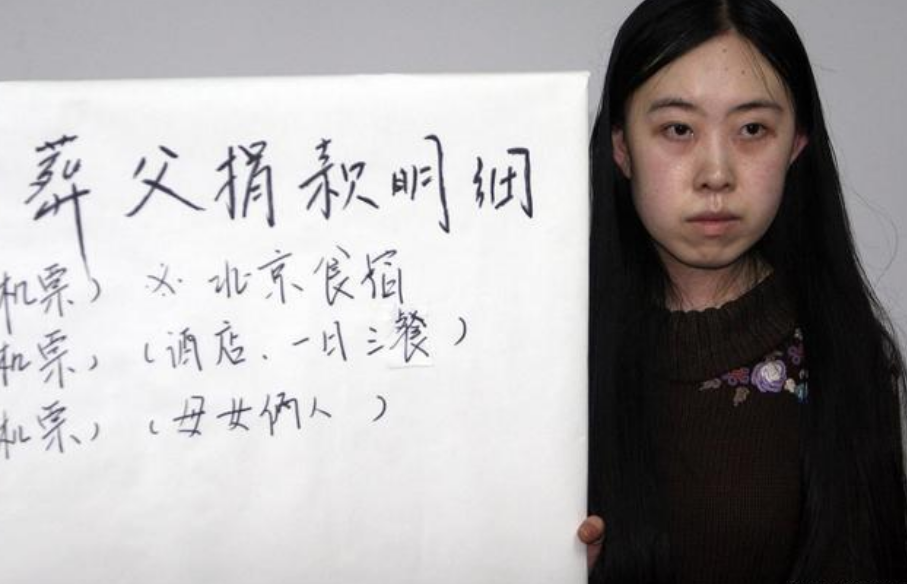 葬父捐款明细
机票） ※ 北京食宿
机票）（酒店、一日三餐）
机票）（母女俩人 ）